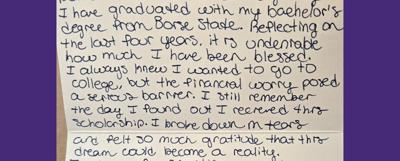 I have graduated with my bachelor's
degree from Boise State. Reflecting on
the last four years, it is undeniable
how much I have been blessed.
I always knew I wanted to go to
college, but the financial worry posed
a serious barrier. I still remember
the day I found out I received this
scholarship. I broke down in tears
and felt so much gratitude that this
dream could become a reality.